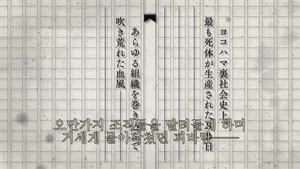 ヨコハマ裏社会史上
最も死体が生産された 日
あらゆる組織を巻き込んで
吹き荒れた血風
오만가지 조직들을 말려들게 하며
거세게 몰아쳤던 피바람――